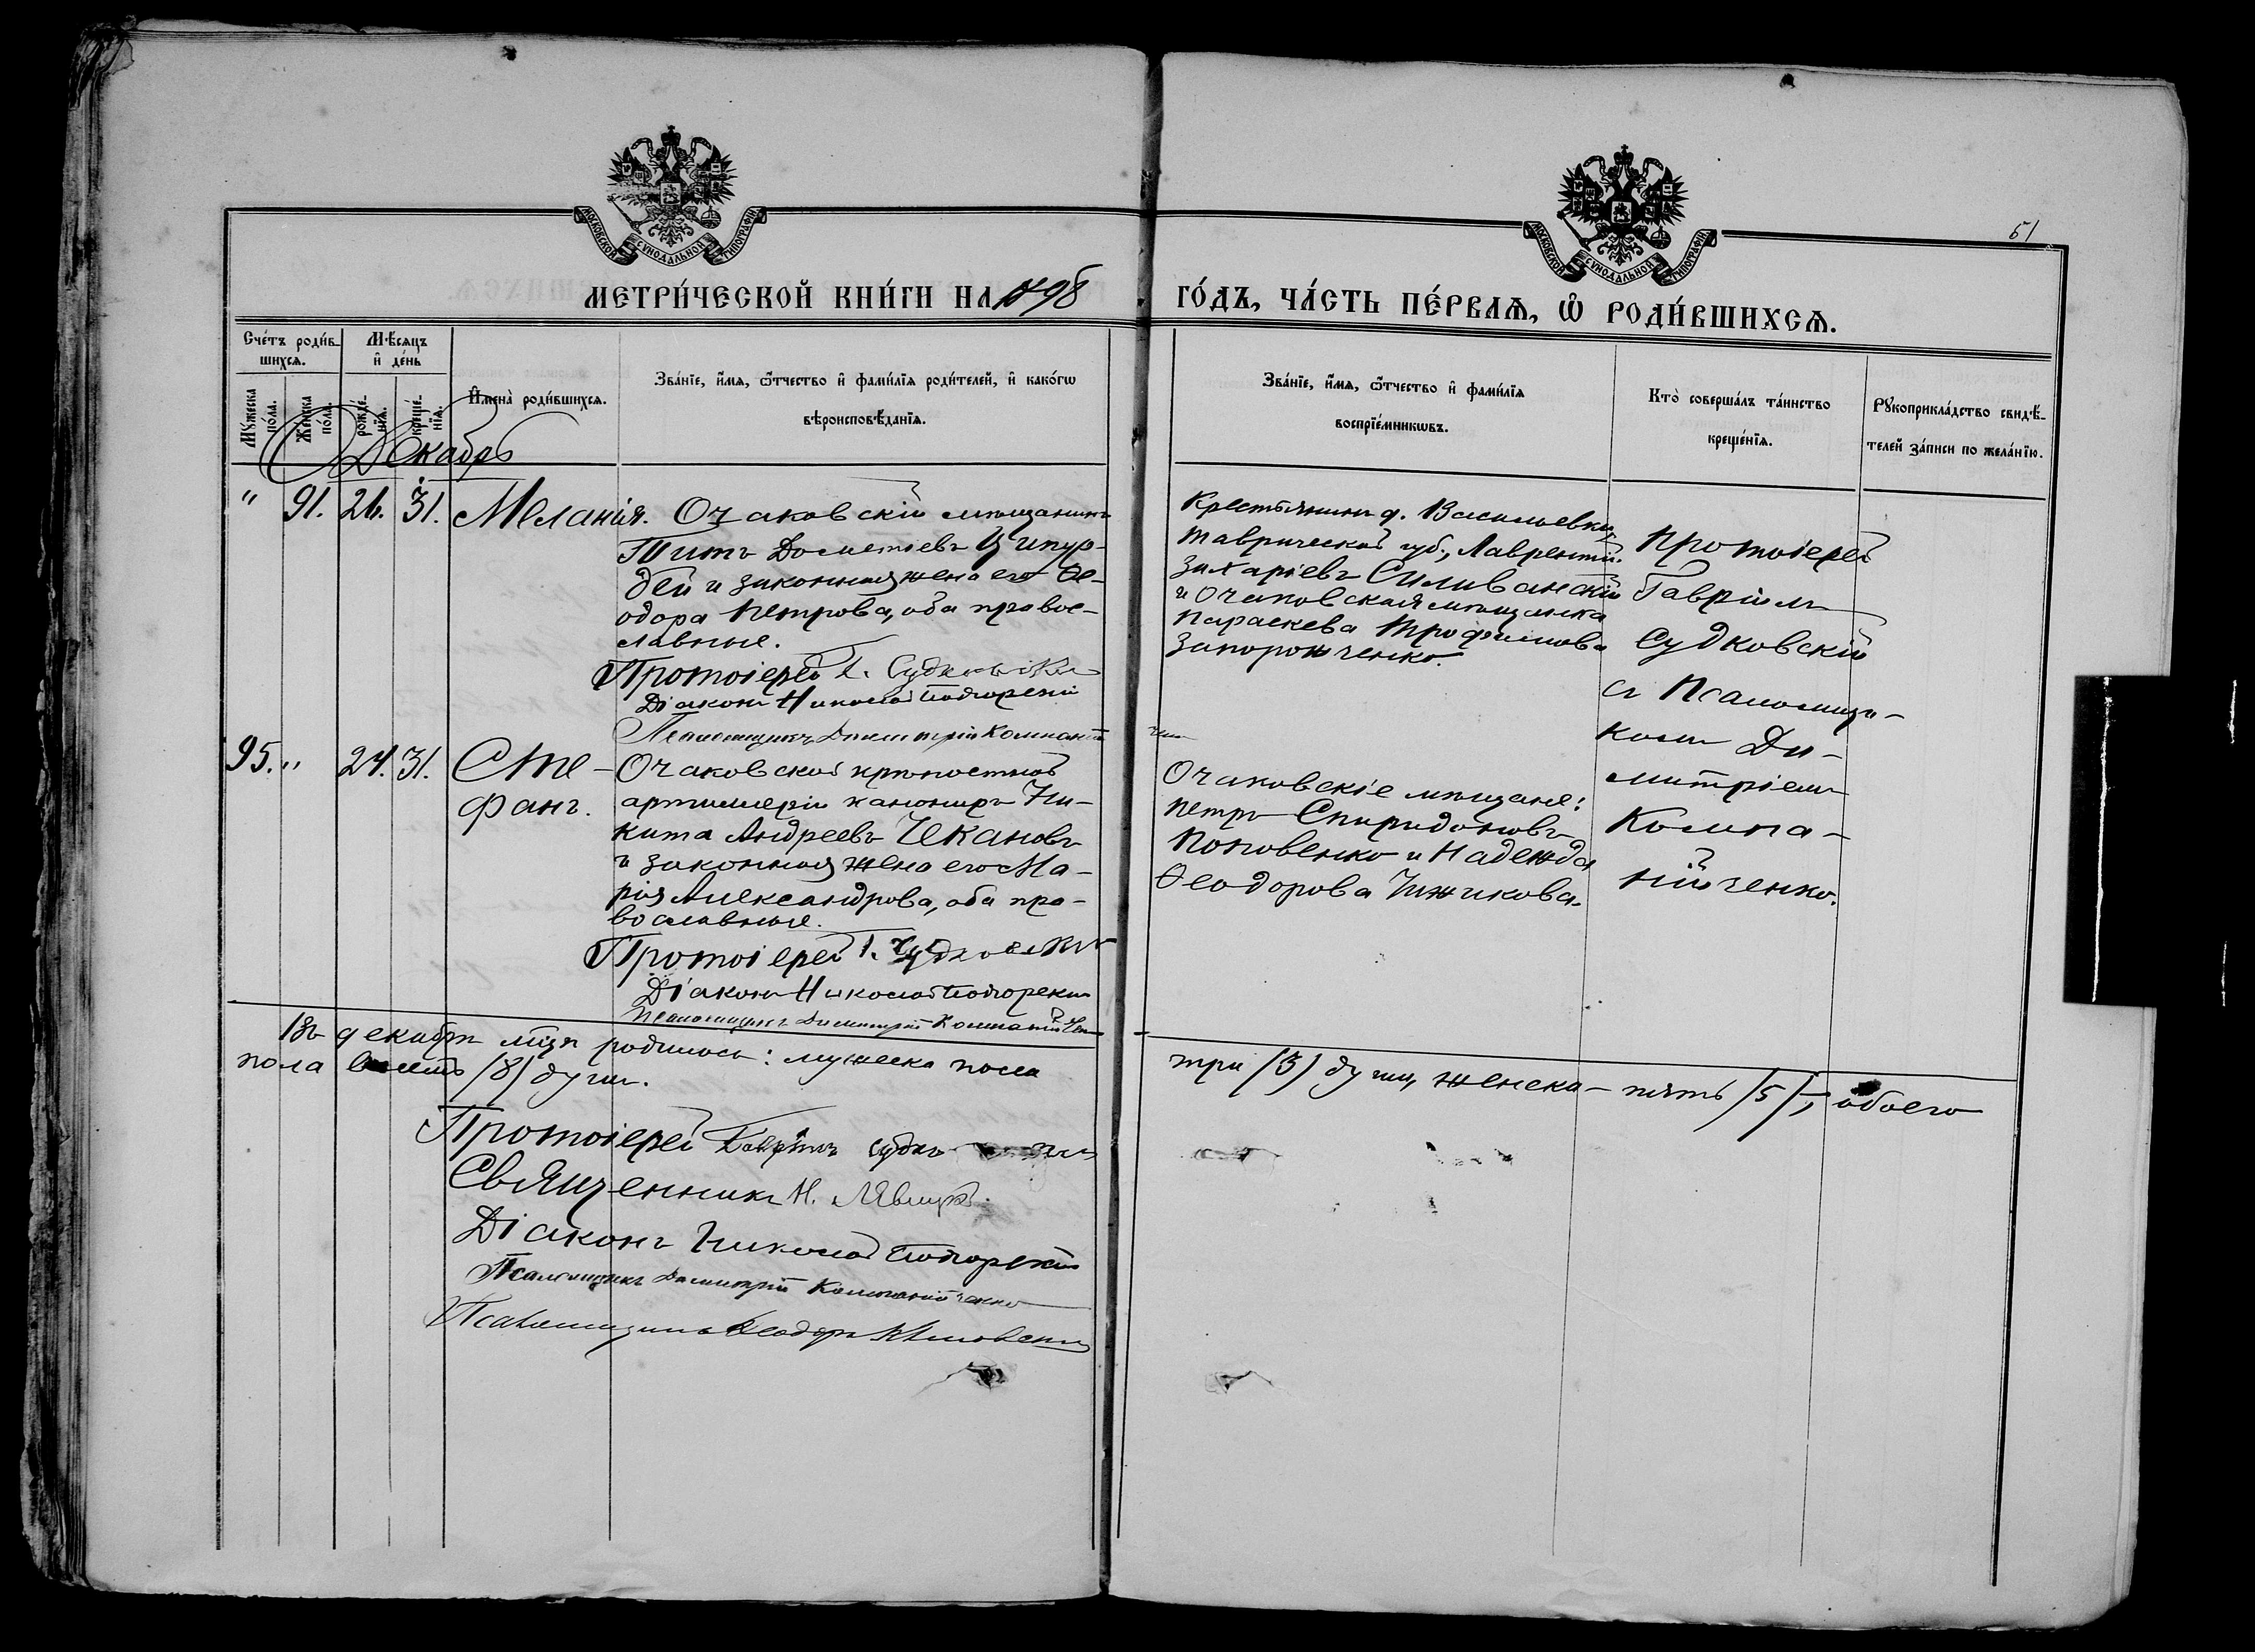 51
МОСКОВСКОЙ СѴНОДАЛЬНОЙ ТИПОГРАФІИ
МОСКОВСКОЙ СѴНОДАЛЬНОЙ ТИПОГРАФІИ
МЕТРИ́ЧЕСКОЙ КНИ́ГИ НА 1898
ГО́ДЪ, ЧА́СТЬ ПЕ́РВАѦ, Ѡ҆ РОДИ́ВШИХСѦ.
Сче́тъ роди́в-
шихсѧ.
Мѣ́сѧцъ
и҆ де́нь
Мꙋ́жеска
по́ла.
Же́нска
по́ла.
рожде́-
нїѧ.
креще́-
нїѧ.
И҆мена̀ роди́вшихсѧ.
Зва́нїе, и҆́мѧ, ѻ҆́тчество и҆ фами́лїѧ роди́телей, и҆ како́гѡ
вѣроисповѣ́данїѧ.
Зва́нїе, и҆́мѧ, ѻ҆́тчество и҆ фами́лїѧ
воспрїе́мникѡвъ.
Кто̀ соверша́лъ та́инство
креще́нїѧ.
Рꙋкоприкла́дство свидѣ́-
телей за́писи по жела́нїю.
Декабрь
" 91. 26. 31. Меланія.
Очаковскій мѣщанинъ
Титъ Дометіевъ Ципур-
дей и законная жена его Ѳе-
одора Петрова, оба право-
славные.
Протоіерей Г. Судковскій
Діаконъ Николай Подгорскій
Псаломщикъ Димитрій Компаній
ченко
Крестьянинъ д. Васильевки,
Таврической губ., Лаврентій
Захаріевъ Силиванскій
и Очаковская мѣщанка
Параскева Трофимова
Запорожченко.
Протоіерей
Гавріилъ
Судковскій
съ Псаломщи-
комъ Ди-
митріемъ
Компа-
нійченко.
95. " 24. 31. Сте-
фанъ.
Очаковской крѣпостной
артиллеріи канониръ Ни-
кита Андреевъ Чекановъ
и законная жена его Ма-
рія Александрова, оба пра-
вославные.
Протоіерей Г. Судковскій
Діаконъ Николай Подгорскій
Псаломщикъ Димитрій Компанійченко
Очаковскіе мѣщане:
Петръ Спиридоновъ
Поповенко и Надежда
Ѳеодорова Чижикова.
Въ декабрѣ мѣсц родилось: мужеска пола три /3/ души, женска – пять /5/, обоего
пола восемь /8/ душъ.
Протоіерей Гавріилъ Судковскій
Священникъ Н.
Діаконъ Николай Подгорскій
Псаломщикъ Димитрій Компанійченко
Псаломщикъ Ѳеодоръ